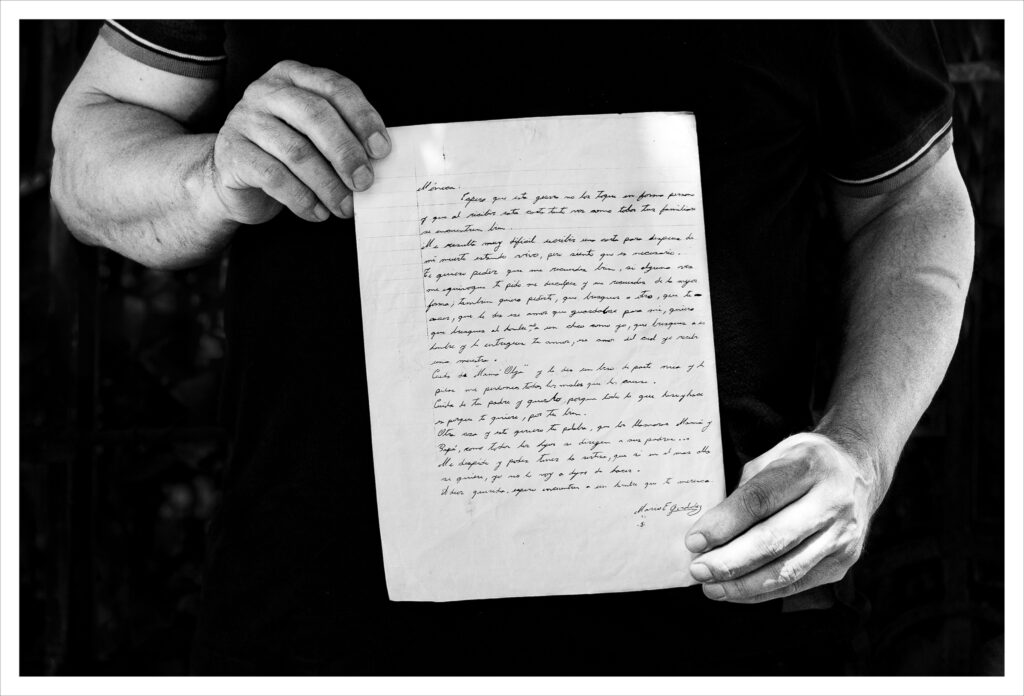 Mónica:
Espero que esta guerra no los toque en forma personal
y que al recibir esta carta tanto vos como todos tus familiares
se encuentren bien.
Me resulta muy difícil escribir una carta para despues de
mi muerte estando vivo, pero siento que es necesario.
Te quiero pedir que me recuerdes bien, si alguna vez
me equivoque te pido me disculpes y me recuerdes de la mejor
forma; tambien quiero pedirte, que busques a otro, que te
cases, que le des ese amor que guardabas para mi, quiero
que busques al hombre a un chico como yo, que busques a un
hombre y le entregues tu amor, ese amor del cual yo recibi
una muestra.
Cuida de "Mamá Olga" y le das un beso de parte mia y le
pides me perdone todos los males que le cause.
Cuida de tu padre y querelo, porque todo lo que hace
es porque te quiere, por tu bien.
Otra cosa y esta quiero tu palabra, que los llamaras Mamá y
Papá, como todos los hijos se dirigen a sus padres...
Me despido y podes tener la certeza, que si en el mas alla
se quiere, yo no lo voy a dejar de hacer.
Adios querida, espero encuentres a un hombre que te merezca